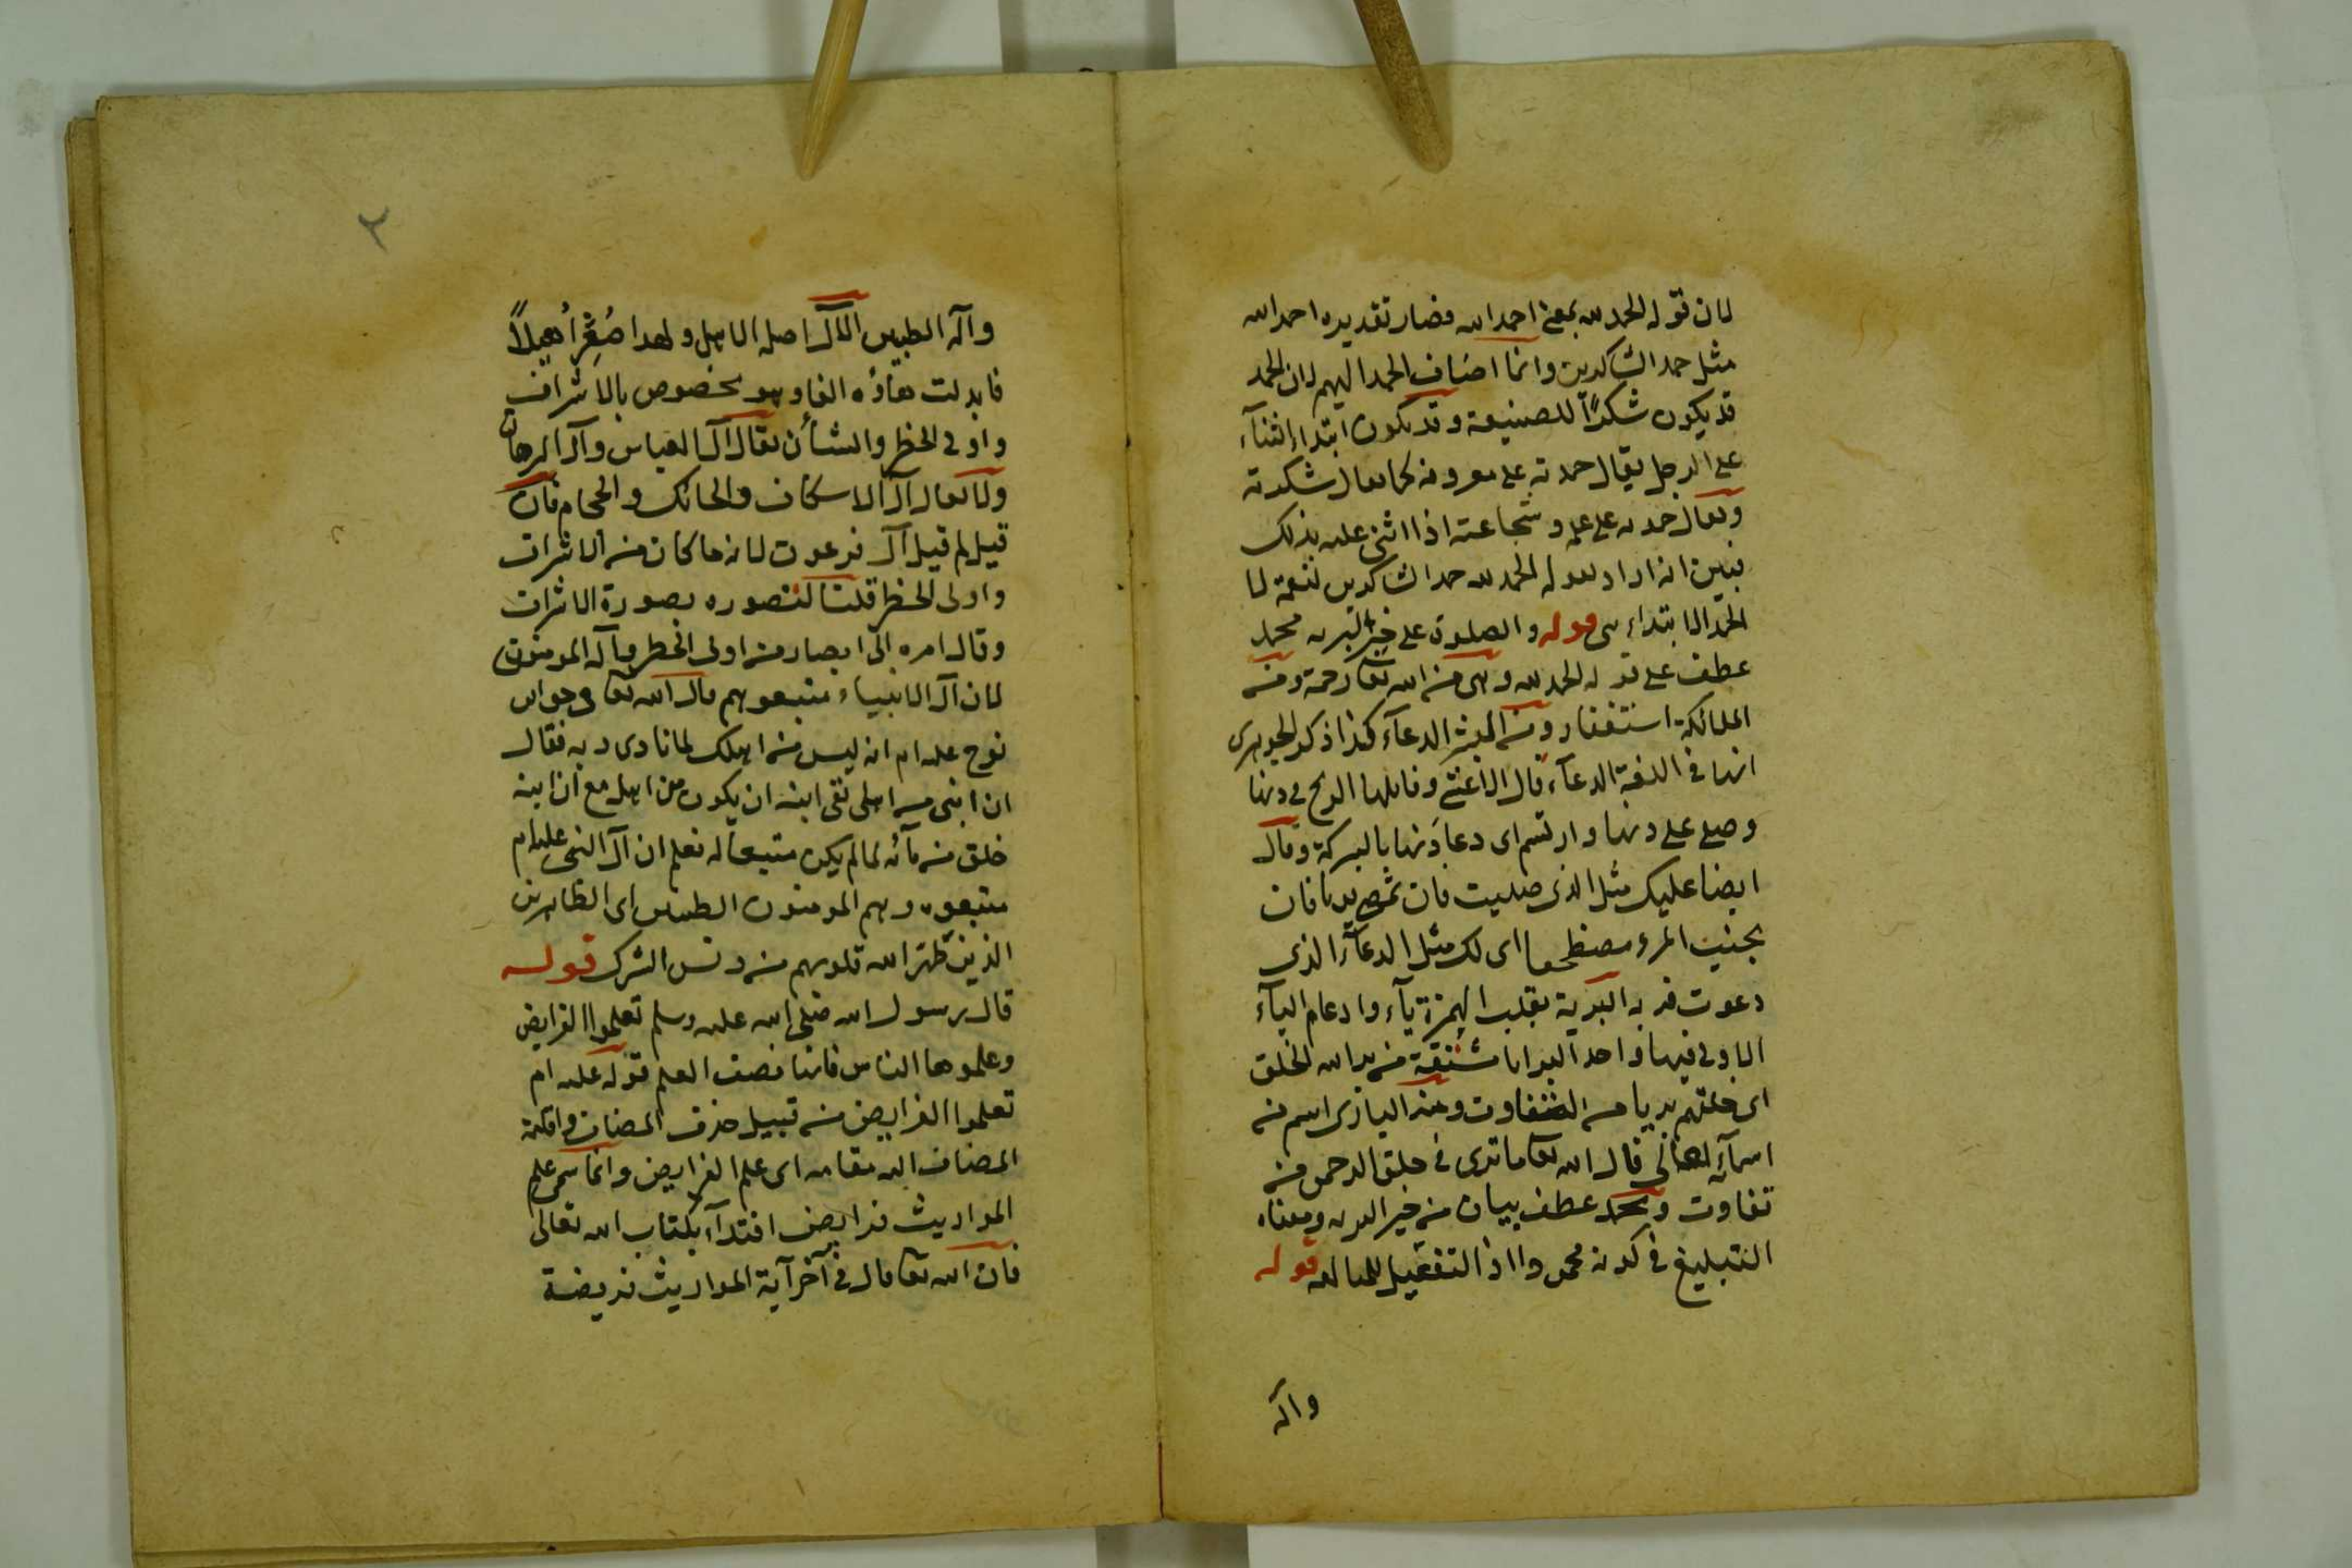 لان قوله الحمد لله بمعنى احمد الله فصار تقديره احمد الله
مثل حمد الشاكرين وانما اضاف الحمد اليهم لان الحمد
قد يكون شكرًا للصنيعة وقد يكون ابتداء الثنآء
على الرجل يقال حمدته على معروفه كما يقال شكرته
ويقال حمدته على علمه وشجاعته اذا اثنى عليه بذلك
فبين انه اراد بقوله الحمد لله حمد الشاكرين لنعمه لا
الحمد الابتداءى قوله والصلوة على خير البريه محمد
عطف على قوله الحمد لله وهى من الله تعا رحمة ومن
الملائكة استغفار ومن البشر الدعآء كذا ذكر الجوهرى
انها فى اللغة الدعآء قال الاعشى وقابلها الريح فى دنها
وصلى على دنها وارتسم اى دعا دنها بالبركة وقال
ايضا عليك مثل الذى صليت فان
بجنب المرء مضطجعا اى لك مثل الدعآء الذى
دعوت به البرية بقلب الهمزة يآء وادغام اليآء
الاولى فيها واحد البرايا مشتقة من برا الله الخلق
اى خلقهم بريا من التفاوت ومنه البارى اسم من
اسمآئه تعالى قال الله تعا ما ترى فى خلق الرحمن من
تفاوت ومحمد عطف بيان من خير البريه ومعناه
التبليغ فى كونه محمودا اذ التفعيل للمبالغه قوله
وآله
٢
وآله الطيبين الآل اصله الاهل ولهذا صُغِّر أُهيلاً
فابدلت هاؤه الفا وهو مخصوص بالاشراف
واولى الخطر والشأن يقال آل العباس وآل البرهان
ولا يقال آل الاسكاف والحائك والحجام فان
قيل لم قيل آل فرعون لانه ما كان من الاشراف
واولى الخطر قلنا لتصوره بصورة الاشراف
وقال امره الى ان صار من اولى الخطر وآله المومنون
لان آل الانبياء متبعوهم قال الله تعا فى جواب
نوح عليه ام انه ليس من اهلك لما نادى ربه فقال
ان ابنى من اهلى نفى ابنه ان يكون من اهله مع ان ابنه
خلق من مآئه لما لم يكن متبعا له نعلم ان آل النبى عليه ام
متبعوه وهم المومنون الطيبين اى الطاهرين
الذين طهر الله قلوبهم من دنس الشرك قوله
قال رسول الله صلى الله عليه وسلم تعلموا الفرايض
وعلموها الناس فانها نصف العلم قوله عليه ام
تعلموا الفرايض من قبيل حذف المضاف واقامة
المضاف اليه مقامه اى علم الفرايض وانما سمى علم
المواريث فرايض اقتدآء بكتاب الله تعالى
فان الله تعا قال فى آخر آية المواريث فريضة